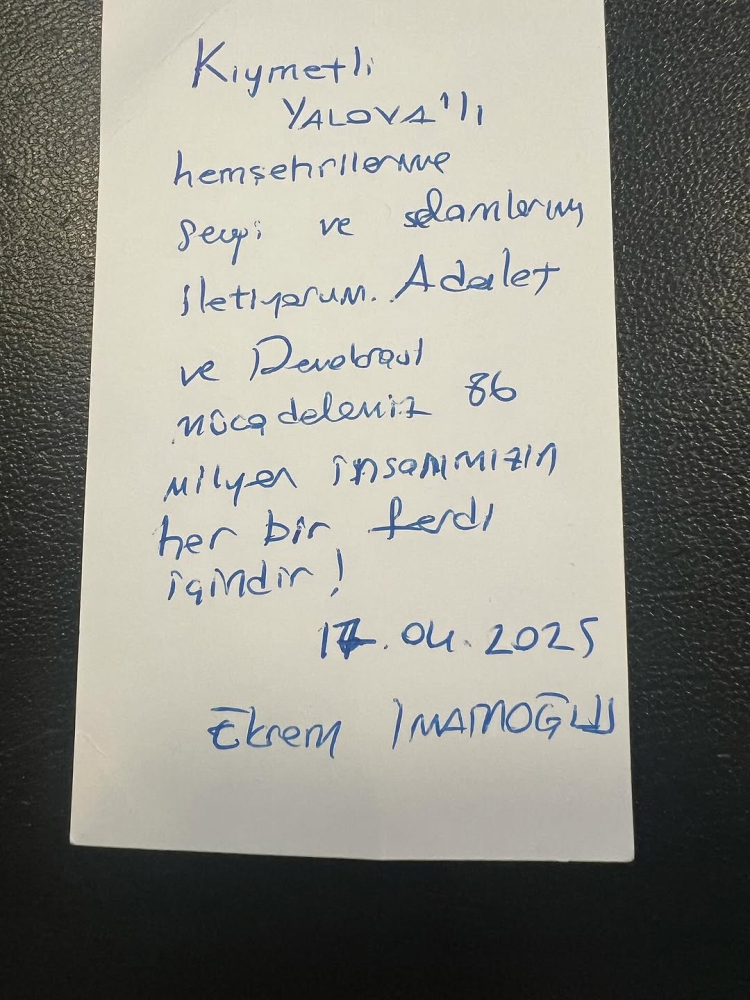 Kıymetli
YALOVA'lı
hemşehrilerime
sevgi ve selamlarımı
iletiyorum. Adalet
ve Demokrasi
mücadelemiz 86
milyon insanımızın
her bir ferdi
içindir!
17.04.2025
Ekrem İMAMOĞLU